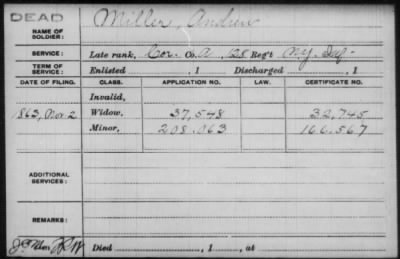 DEAD
NAME OF SOLDIER: Miller, Andrew
SERVICE: Late rank, Cor. Co. A, 128 Reg't N.Y. Inf.
TERM OF SERVICE: Enlisted , 1 Discharged , 1
DATE OF FILING. CLASS. APPLICATION NO. LAW. CERTIFICATE NO.
Invalid,
1863, Nov 2 Widow, 37,548 32,745
Minor, 208.063 166.567
ADDITIONAL SERVICES:
REMARKS:
Died , 1 , at